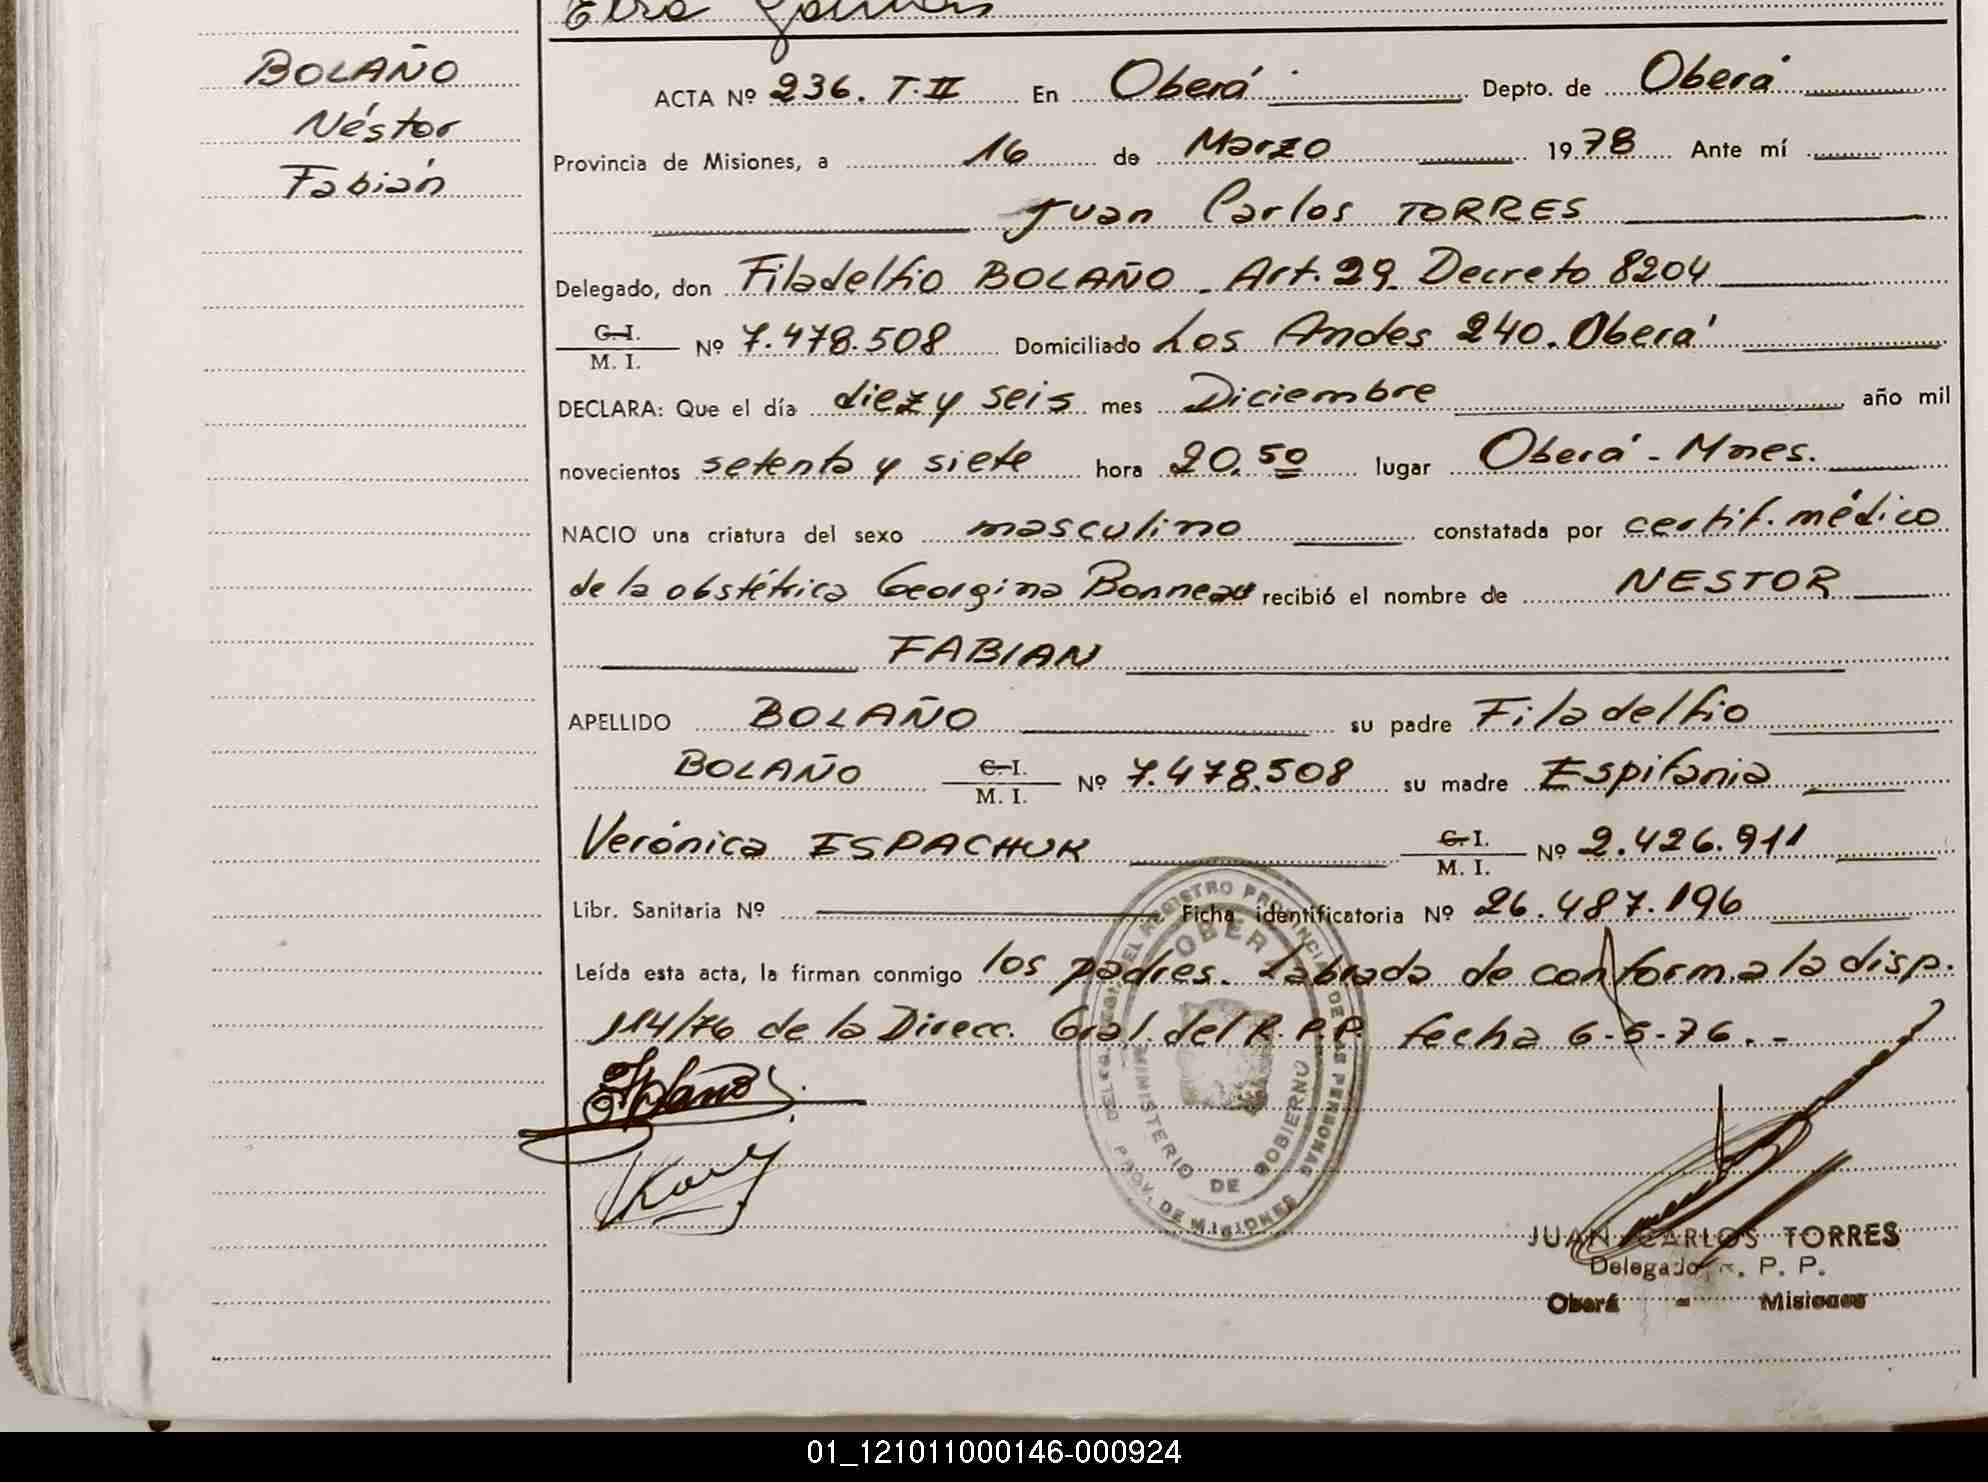 BOLAÑO
Néstor
Fabián
ACTA Nº 236. T. II En Oberá Depto. de Oberá
Provincia de Misiones, a 16 de Marzo 1978 Ante mí
Juan Carlos TORRES
Delegado, don Filadelfio BOLAÑO - Art. 29 Decreto 8204
C. I. / M. I. Nº 7.478.508 Domiciliado Los Andes 240. Oberá
DECLARA: Que el día diez y seis mes Diciembre año mil
novecientos setenta y siete hora 20.50 lugar Oberá - Mnes.
NACIO una criatura del sexo masculino constatada por certif. médico
de la obstétrica Georgina Bonneau recibió el nombre de NESTOR
FABIAN
APELLIDO BOLAÑO su padre Filadelfio
BOLAÑO C. I. / M. I. Nº 7.478.508 su madre Espifania
Verónica ESPACHUK C. I. / M. I. Nº 2.426.911
Libr. Sanitaria Nº Ficha identificatoria Nº 26.487.196
Leída esta acta, la firman conmigo los padres. Labrada de conform. a la disp.
114/76 de la Direcc. Gral. del R. P. P. fecha 6-5-76.-
REGISTRO PROVINCIAL DE LAS PERSONAS
OBERA
MINISTERIO DE GOBIERNO
PROV. DE MISIONES
JUAN CARLOS TORRES
Delegado R. P. P.
Oberá - Misiones
01_121011000146-000924